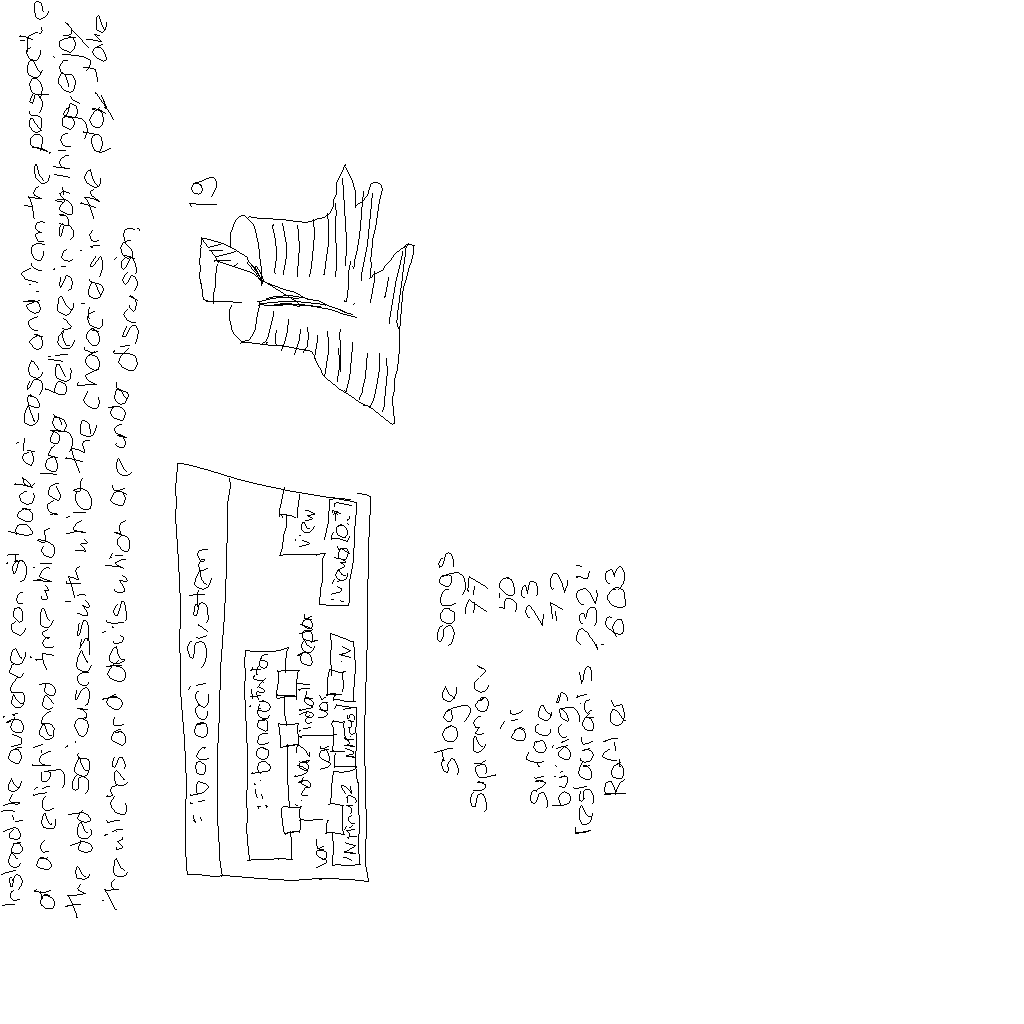 Instead the audience can sit back at ease and from the perspective
of an enlightened time which no longer believes in such things enjoy
the dead seriousness with which the characters in the play take
the witches and devils which are under discussion.
19
Fibonacci System
:Fibonacci
view
:View
var
var
var
N
Stage Songs
Supremacy 77
air 50
Surface 23
buildings 72
restaurants 2324
Rafter 603